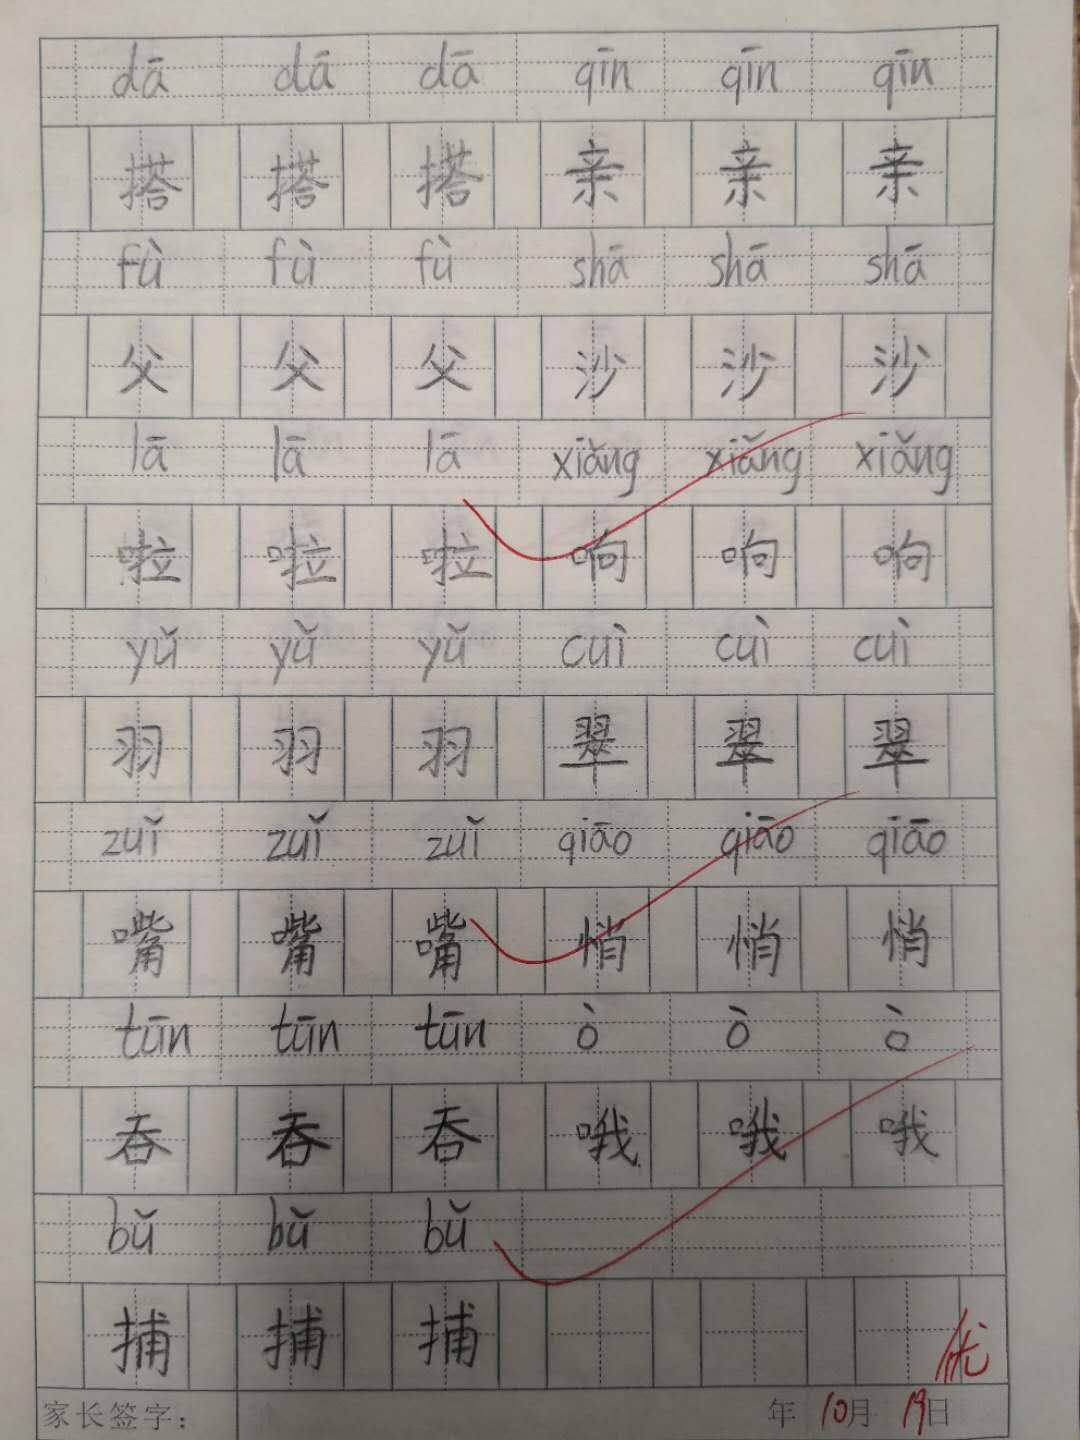 dā dā dā qīn qīn qīn
搭 搭 搭 亲 亲 亲
fù fù fù shā shā shā
父 父 父 沙 沙 沙
lā lā lā xiǎng xiǎng xiǎng
啦 啦 啦 响 响 响
yǔ yǔ yǔ cuì cuì cuì
羽 羽 羽 翠 翠 翠
zuǐ zuǐ zuǐ qiāo qiāo qiāo
嘴 嘴 嘴 悄 悄 悄
tūn tūn tūn ò ò ò
吞 吞 吞 哦 哦 哦
bǔ bǔ bǔ
捕 捕 捕
优
家长签字： 年 10月 19日